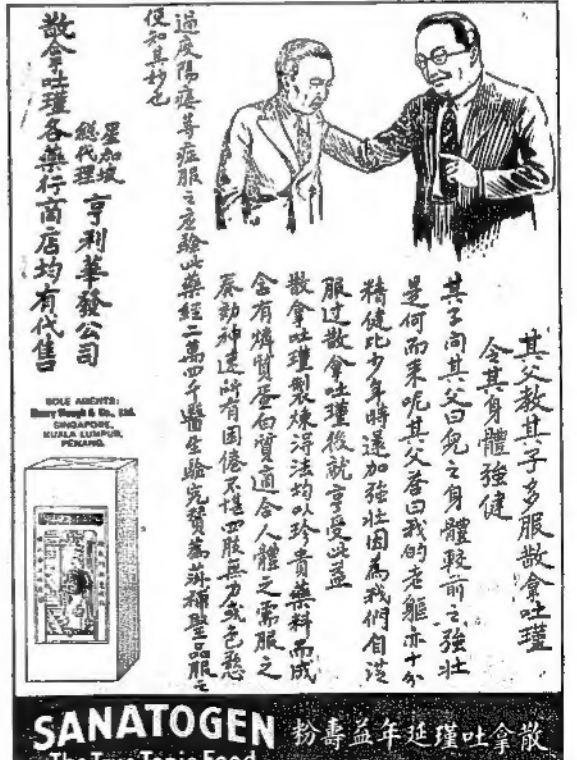 其父教其子多服散拿吐瑾
令其身體強健
其子问其父曰兒之身體較前之強壯
是何而来呢其父答曰我的老軀亦十分
精健比少年時還加強壮因為我們自
服过散拿吐瑾後就享受此益
散拿吐瑾製煉得法均以珍貴藥料而成
含有燐質蛋白質適合人體之需服之
奏効神速所有困倦不堪四肢無力或色慾
過度陽痿等症服之應驗此藥經二萬四千醫生驗完賛為滋補聖品服之
便知其妙也
星加坡
總代理
亨利華發公司
散拿吐瑾各藥行商店均有代售
SOLE AGENTS:
Henry Waugh & Co., Ltd.
SINGAPORE,
KUALA LUMPUR,
PENANG.
SANATOGEN
粉壽益年延瑾吐拿散
The True Tonic Food